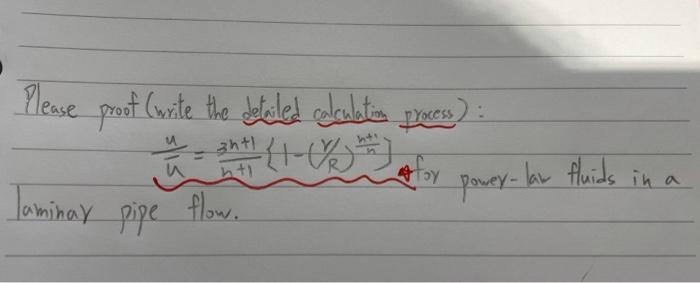 Please proof (write the detailed calculation process) :
u/ū = 3n+1/n+1 {1-(r/R)^(n+1/n)} for power-law fluids in a
laminar pipe flow.